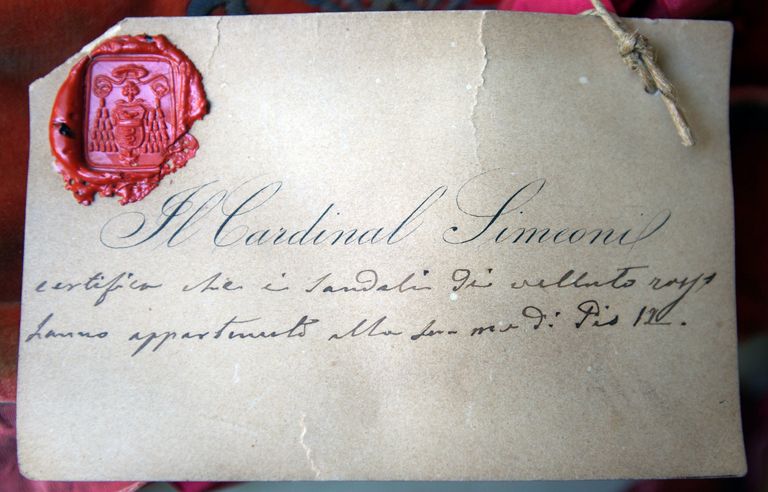 Il Cardinal Simeoni
certifica che i sandali di velluto rosso
hanno appartenuto alla sa. me. di Pio IX.